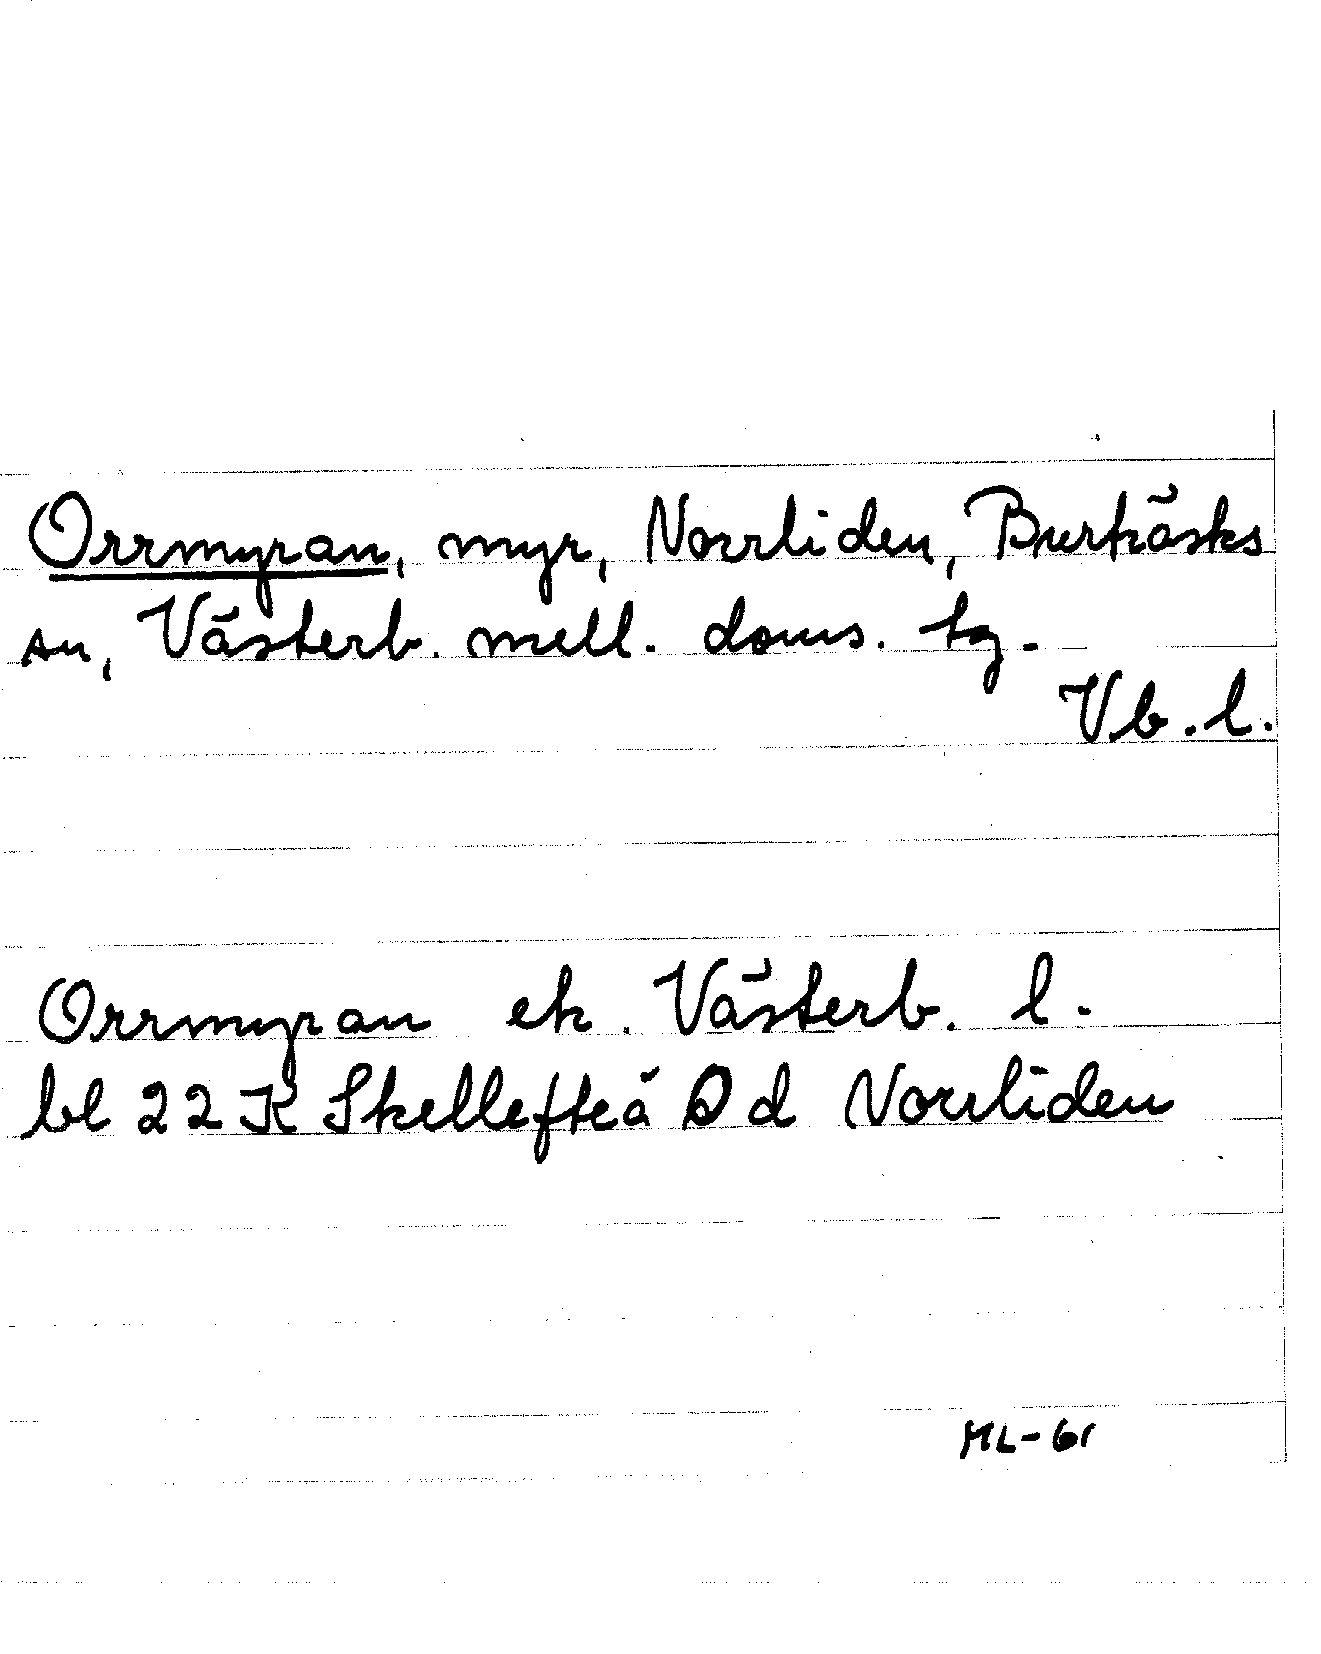 Orrmyran, myr, Norrliden, Burträsks
sn, Västerb. mell. doms. tg.
Vb. l.
Orrmyran ek. Västerb. l.
bl 22 K Skellefteå D d Norrliden
ML-61